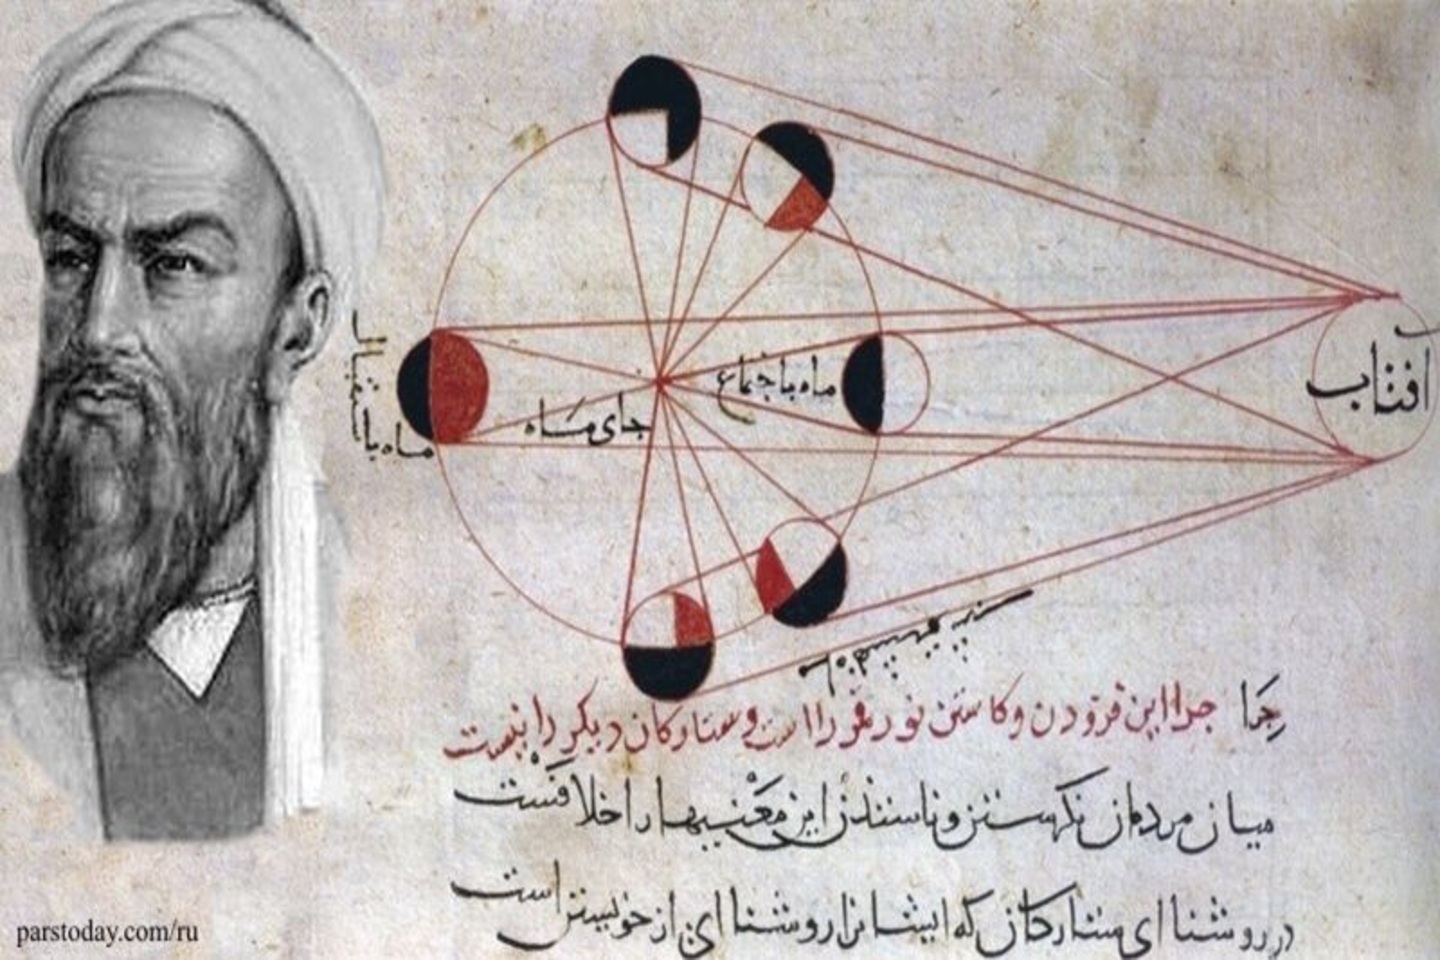 افتاب
ماه باجتماع
جای ماه
ماه باستقبال
چرا این فزودن و کاستن نور قمر را است و ستارکان دیکر را نیست
میان مردمان نکرستن و ناستدن این معنیها را خلافست
در روشنا ای ستارکان که ایشانرا روشنا ای از خویشتن است
parstoday.com/ru